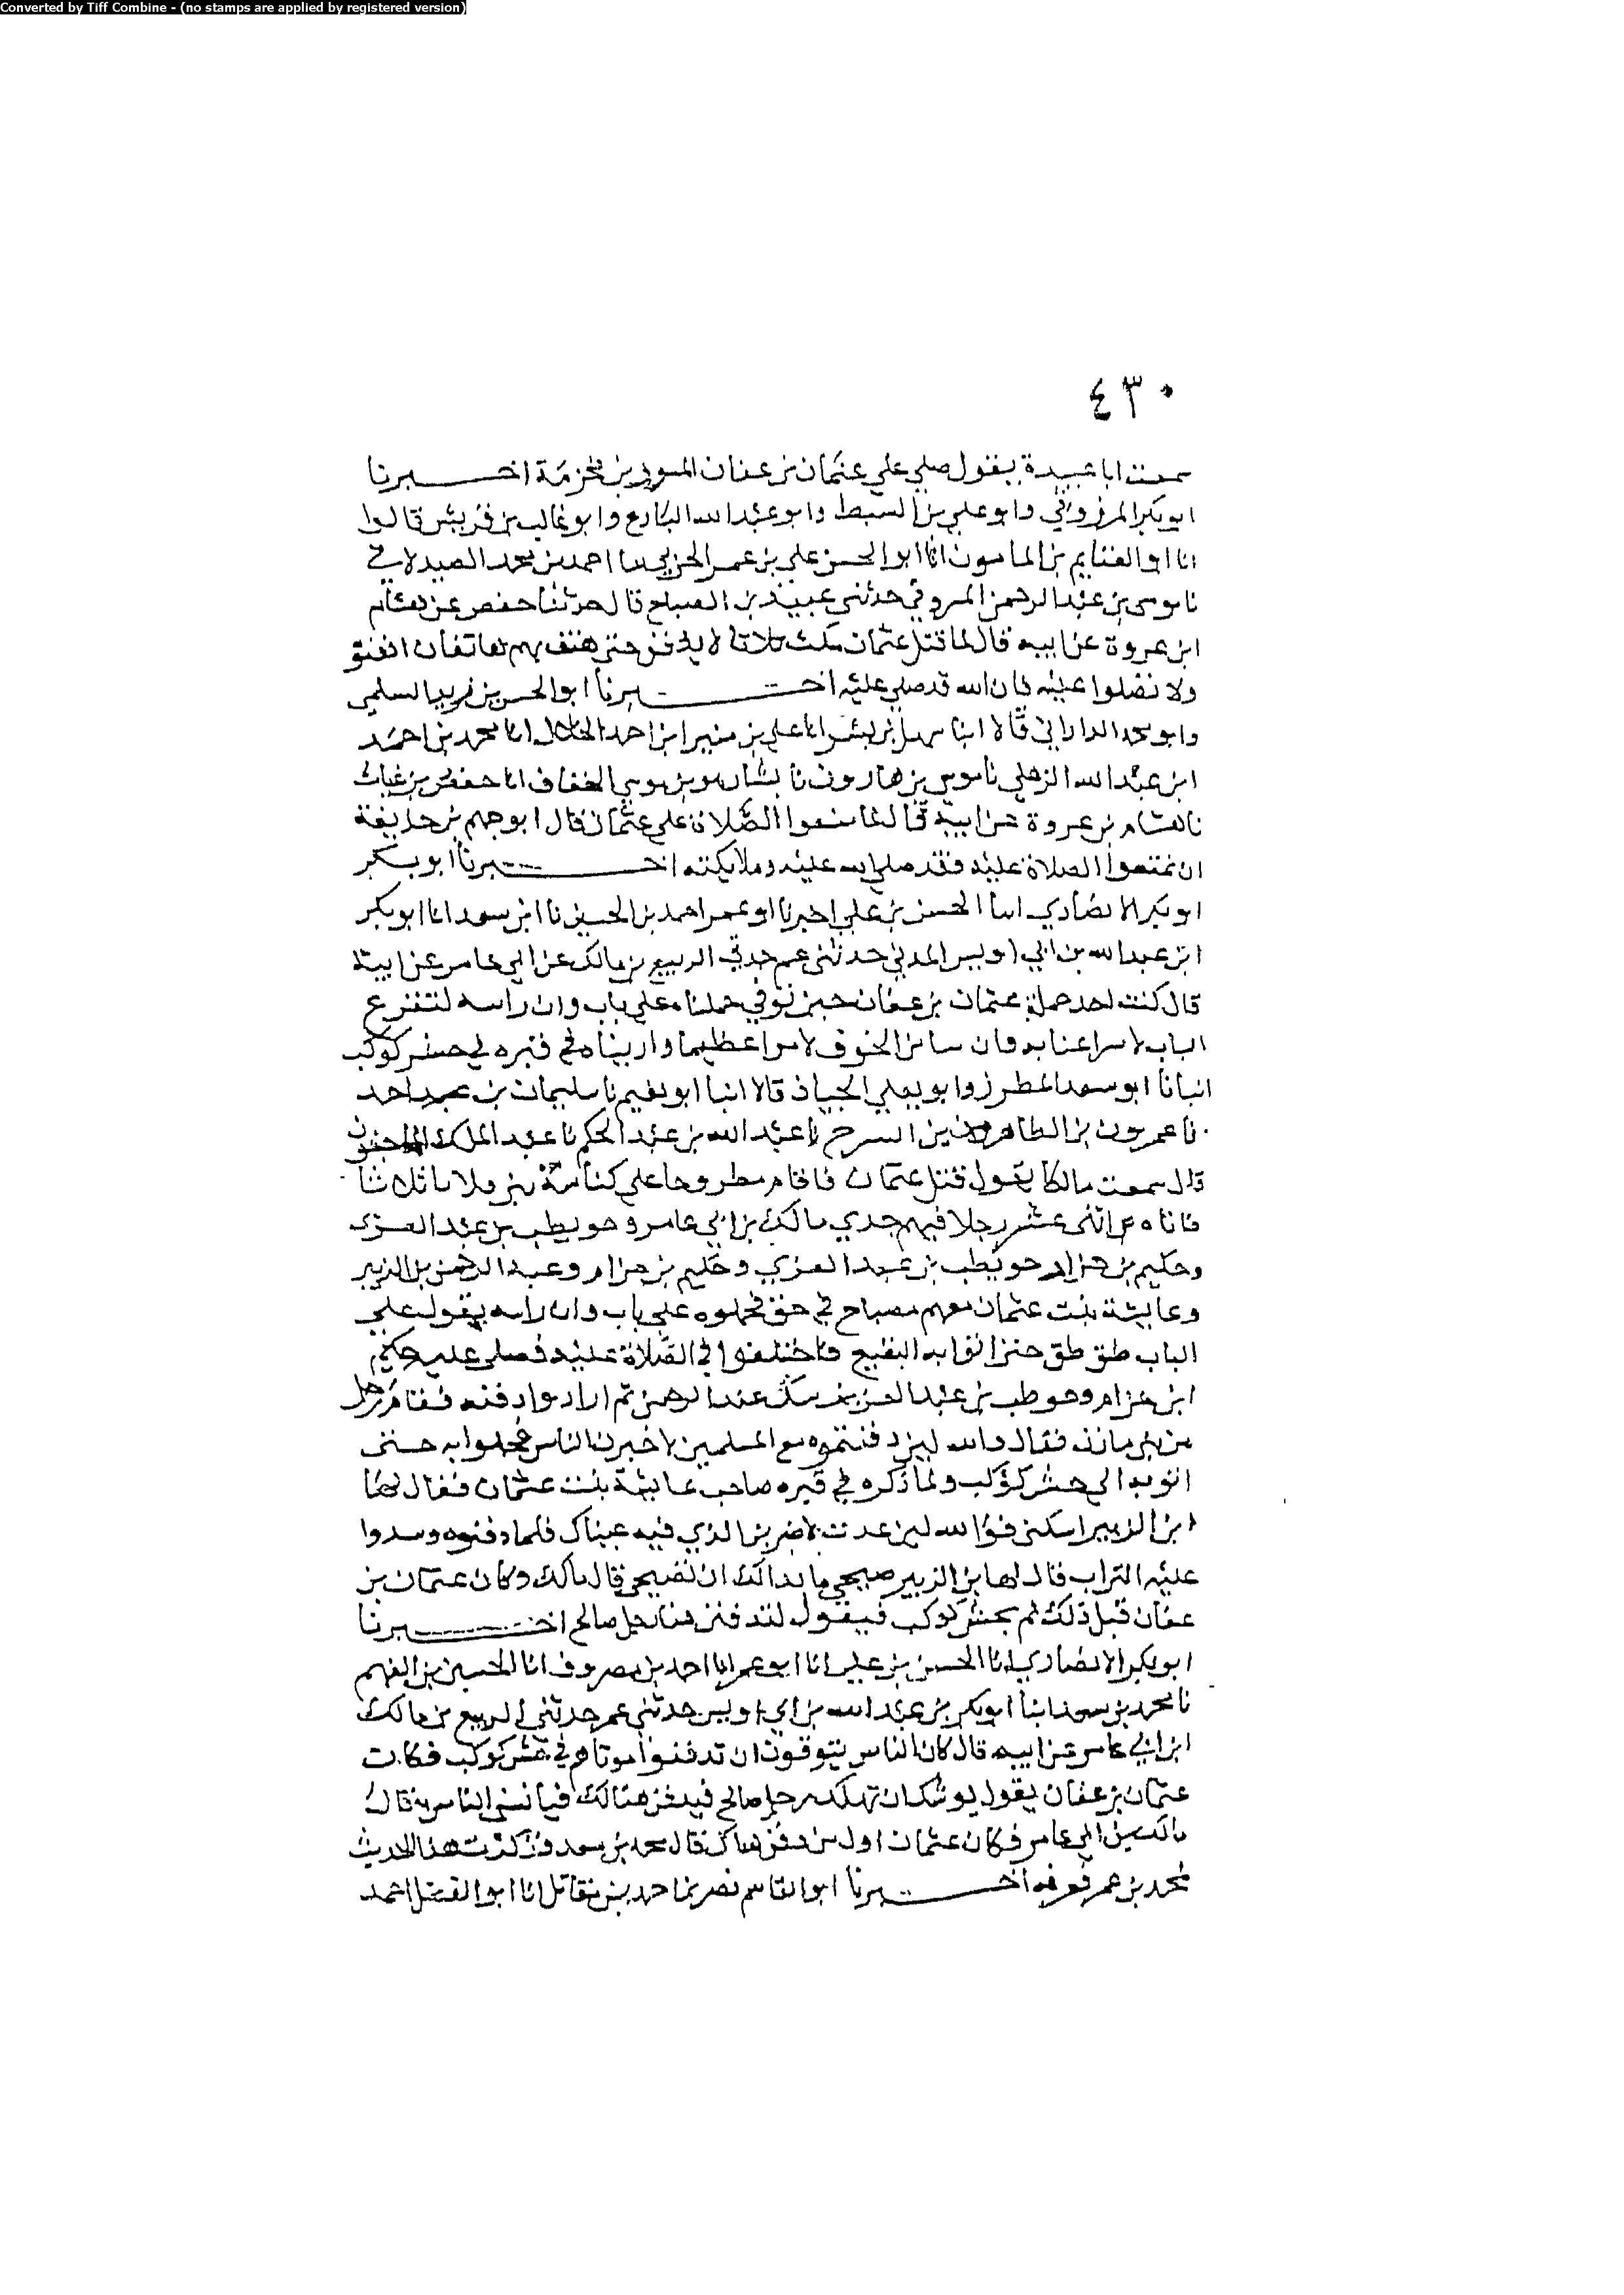 Converted by Tiff Combine - (no stamps are applied by registered version)
٤٣٠
سمعت ابا عبيدة يقول صلي علي عثمان بن عفان المسور بن مخرمة اخبرنا
ابو بكر المرزوقي وابو علي بن السبط وابو عبد الله البارع وابو غالب بن قريش قالوا
انا ابو الغنايم بن المامون انا ابو الحسن علي بن عمر الحربي نا احمد بن محمد الصيدلاني
نا موسى بن عبد الرحمن حدثني عبيد بن الصباح قال حدثنا حفص عن هشام
ابن عروة عن ابيه قال لما قتل عثمان مكث ثلاثا لا يدفن حتى هتف بهم هاتف ان ادفنوه
ولا تصلوا عليه فان الله قد صلي عليه اخبرنا ابو الحسن بن السلمي
وابو محمد الداراني قالا انبا سهل بن بشر انا علي بن منير ابن احمد الخلال انا محمد بن احمد
ابن عبد الله الذهلي نا موسى بن هارون نا بشار بن موسي الخفاف انا حفص بن غياث
نا هشام بن عروة عن ابيه قال لما منعوا الصلاة علي عثمان قال ابو جهم بن حذيفة
ان تمنعوا الصلاة عليه فقد صلي الله عليه وملايكته اخبرنا ابو بكر
ابو بكر الانصاري انبا الحسن بن علي اخبرنا ابو عمر احمد بن الحسين نا ابن سعد انا ابو بكر
ابن عبد الله بن ابي اويس المدني حدثني عم جدتي الربيع بن مالك عن ابي عامر عن ابيه
قال كنت احد حملة عثمان بن عفان حين توفي حملناه علي باب وان راسه لتقرع
الباب لاسراعنا به وان بنا من الخوف لامرا عظيما واريناه في قبره في حش كوكب
انبانا ابو سعد المطرز وابو علي قالا انبا ابو نعيم نا سليمان بن احمد
نا عمرو بن ابي الطاهر بن السرح نا عبد الله بن عبد الحكم نا عبد الملك الماجشون
قال سمعت مالكا يقول قتل عثمان فاقام مطروحا علي كناسة بني فلان ثلاثا
فاتاه اثنى عشر رجلا فيهم جدي مالك بن ابي عامر وحويطب بن عبد العزى
وحكيم بن حزام حويطب بن عبد العزي وحكيم بن حزام وعبد الرحمن بن الزبير
وعايشة بنت عثمان معهم مصباح في حق فحملوه علي باب وان راسه يقول علي
الباب طق طق حتى اتوا به البقيع فاختلفوا في الصلاة عليه فصلى عليه حكيم
ابن حزام وحوطب بن عبد العزى شك عبد الرحمن ثم ارادوا دفنه فقام رجل
من بني مازن فقال والله لين دفنتموه مع المسلمين لاخبرن الناس فحملوا به حتى
اتوا به الى حش كوكب ولما دلوه في قبره صاحت عايشة بنت عثمان فقال لها
ابن الزبير اسكتي فوالله لين عدت لاضربن الذي فيه عيناك فلما دفنوه وسدوا
عليه التراب قال لها بن الزبير صيحي ما بدا لك ان تصيحي قال مالك وكان عثمان بن
عفان قبل ذلك يمر بحش كوكب فيقول لتدفنن هنا رجل صالح اخبرنا
ابو بكر الانصاري انا الحسن بن علي انا ابو عمر انا احمد بن معروف انا الحسين بن الفهم
نا محمد بن سعد انبا ابو بكر بن عبد الله بن ابي اويس حدثني عم جدتي الربيع بن مالك
ابن ابي عامر عن ابيه قال كان الناس يتوقون ان تدفنوا موتاهم في حش كوكب فكان
عثمان بن عفان يقول يوشك ان تهلك رجل صالح فيدفن هنالك فيا نسى الناس به قال
مالك بن ابي عامر فكان عثمان اول من دفن هناك قال محمد بن سعد فذكرت هذا الحديث
لمحمد بن عمر فعرفه اخبرنا ابو القاسم نصر بن احمد بن مقاتل انا ابو الفضل احمد